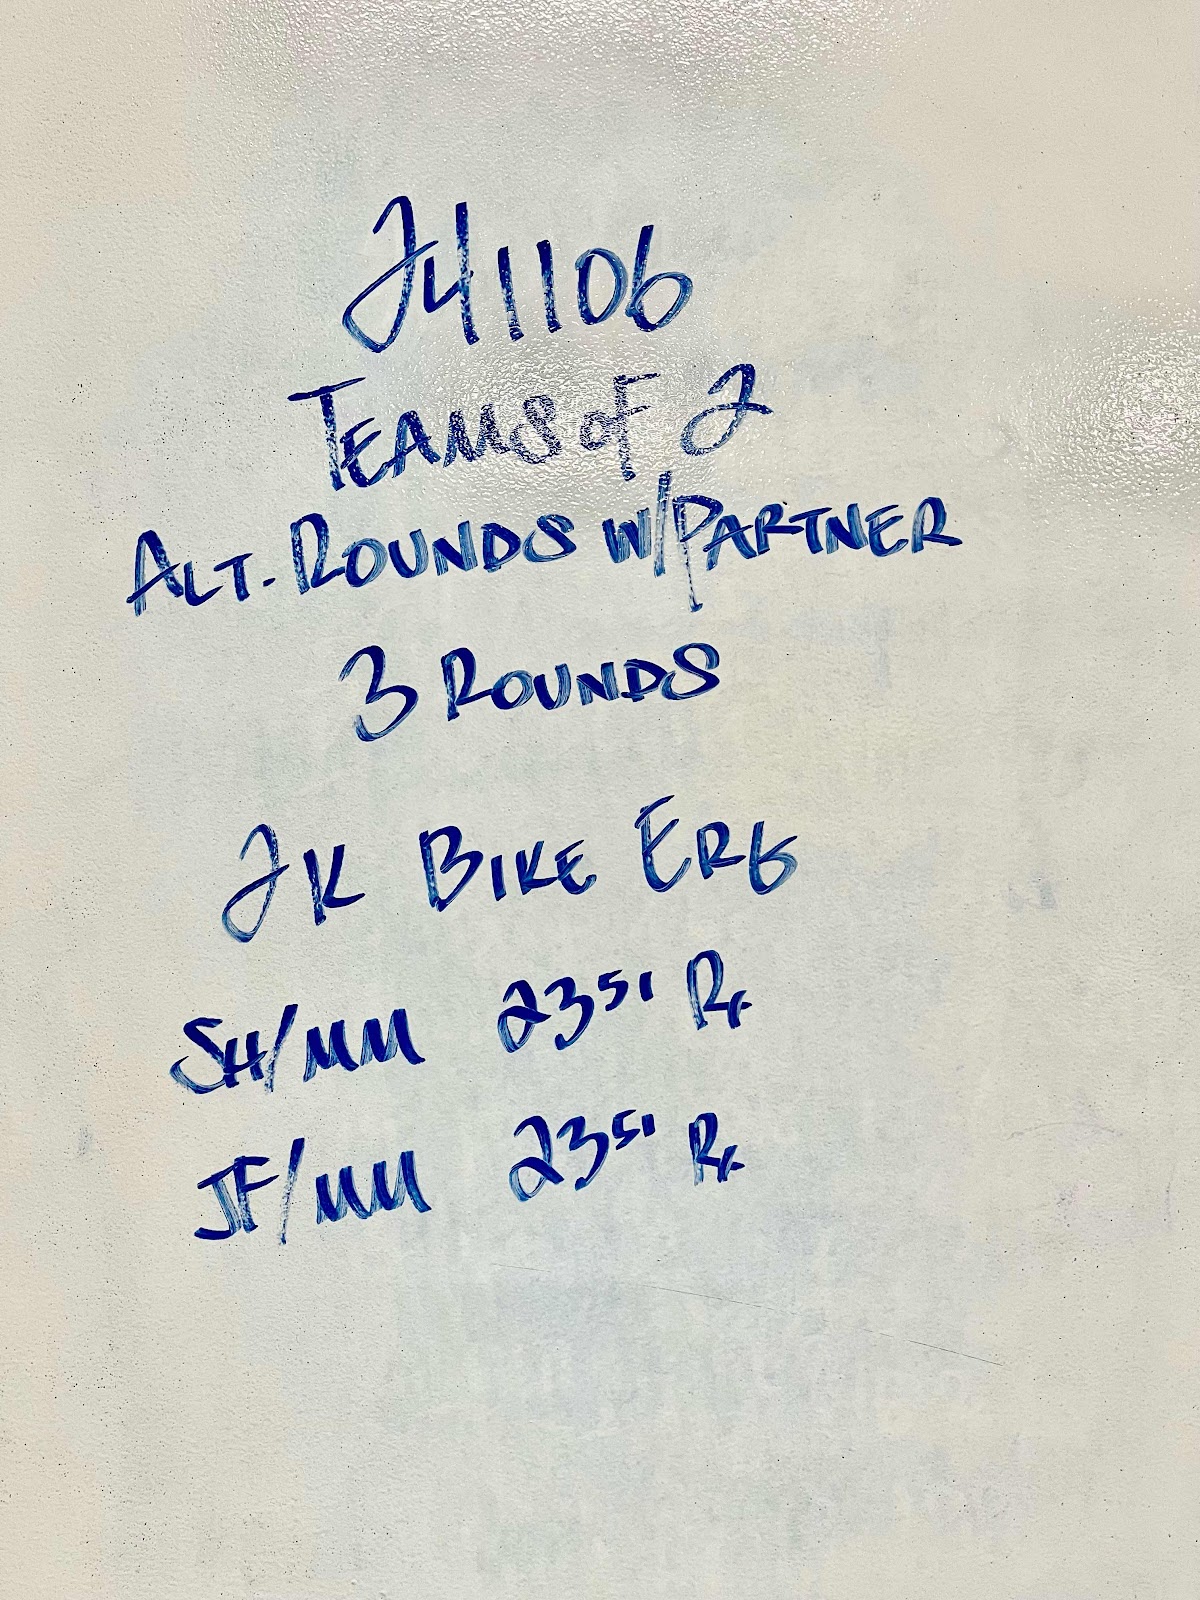 241106
TEAMS OF 2
ALT. ROUNDS W/PARTNER
3 ROUNDS
2K BIKE ERG
SH/MM 23⁵¹ Rx
JF/MM 23⁵¹ Rx